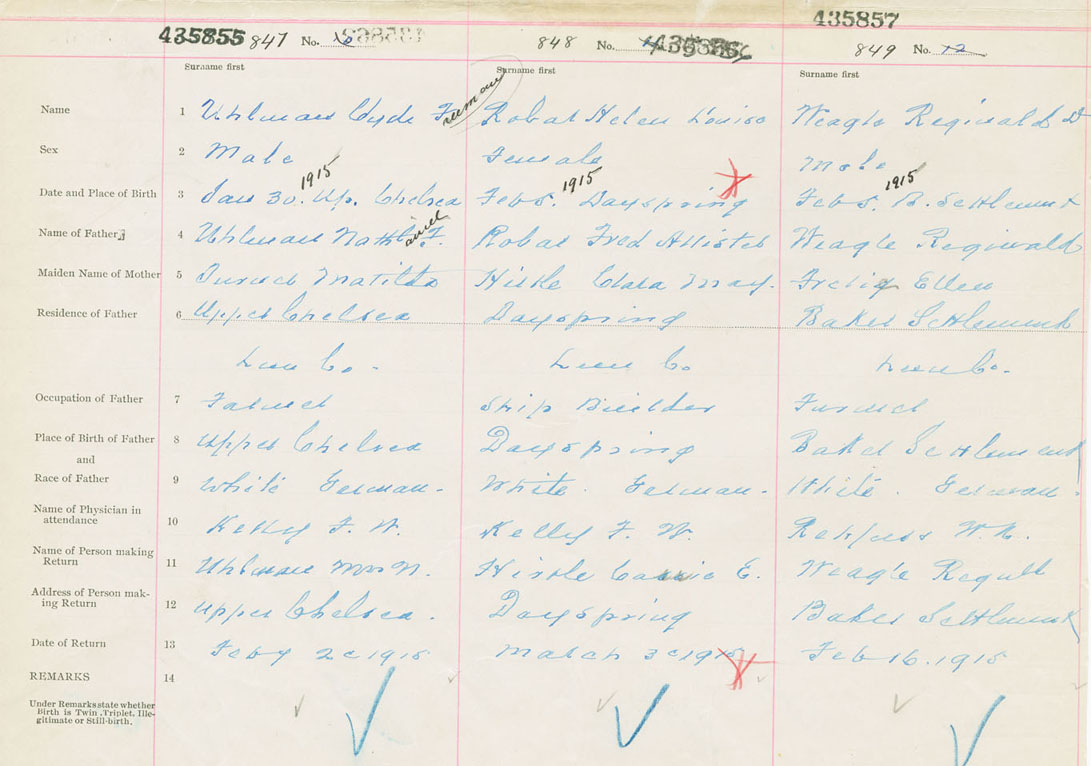 435855 847 No. 848 No. 435857
849 No. 12
Surname first Surname first Surname first
Name 1 Uhlman Clyde F. Freeman Robar Helen Louisa Weagle Reginald D
Sex 2 Male Female Male
1915 1915 1915
Date and Place of Birth 3 Jan 30. Up. Chelsea Feb 5. Dayspring Feb 5. B. Settlement
Name of Father 4 Uhlman Nath F. Robar Fred Allister Weagle Reginald
Maiden Name of Mother 5 Matilda Hirtle Clara May. Ellen
Residence of Father 6 Upper Chelsea Dayspring Baker Settlement
Lun Co. Lun Co Lun Co.
Occupation of Father 7 Farmer Ship Builder Farmer
Place of Birth of Father 8 Upper Chelsea Dayspring Baker Settlement
and
Race of Father 9 White German. White. German. White. German.
Name of Physician in
attendance 10 Kelly F. W. Kelly F. W. Rehfuss W. N.
Name of Person making
Return 11 Uhlman Mrs N. Hirtle Cassie E. Weagle
Address of Person mak-
ing Return 12 Upper Chelsea. Dayspring Baker Settlement
Date of Return 13 Feby 2 1915 March 3 1915 Feb 16. 1915
REMARKS 14
Under Remarks state whether
Birth is Twin, Triplet, Ille-
gitimate or Still-birth.